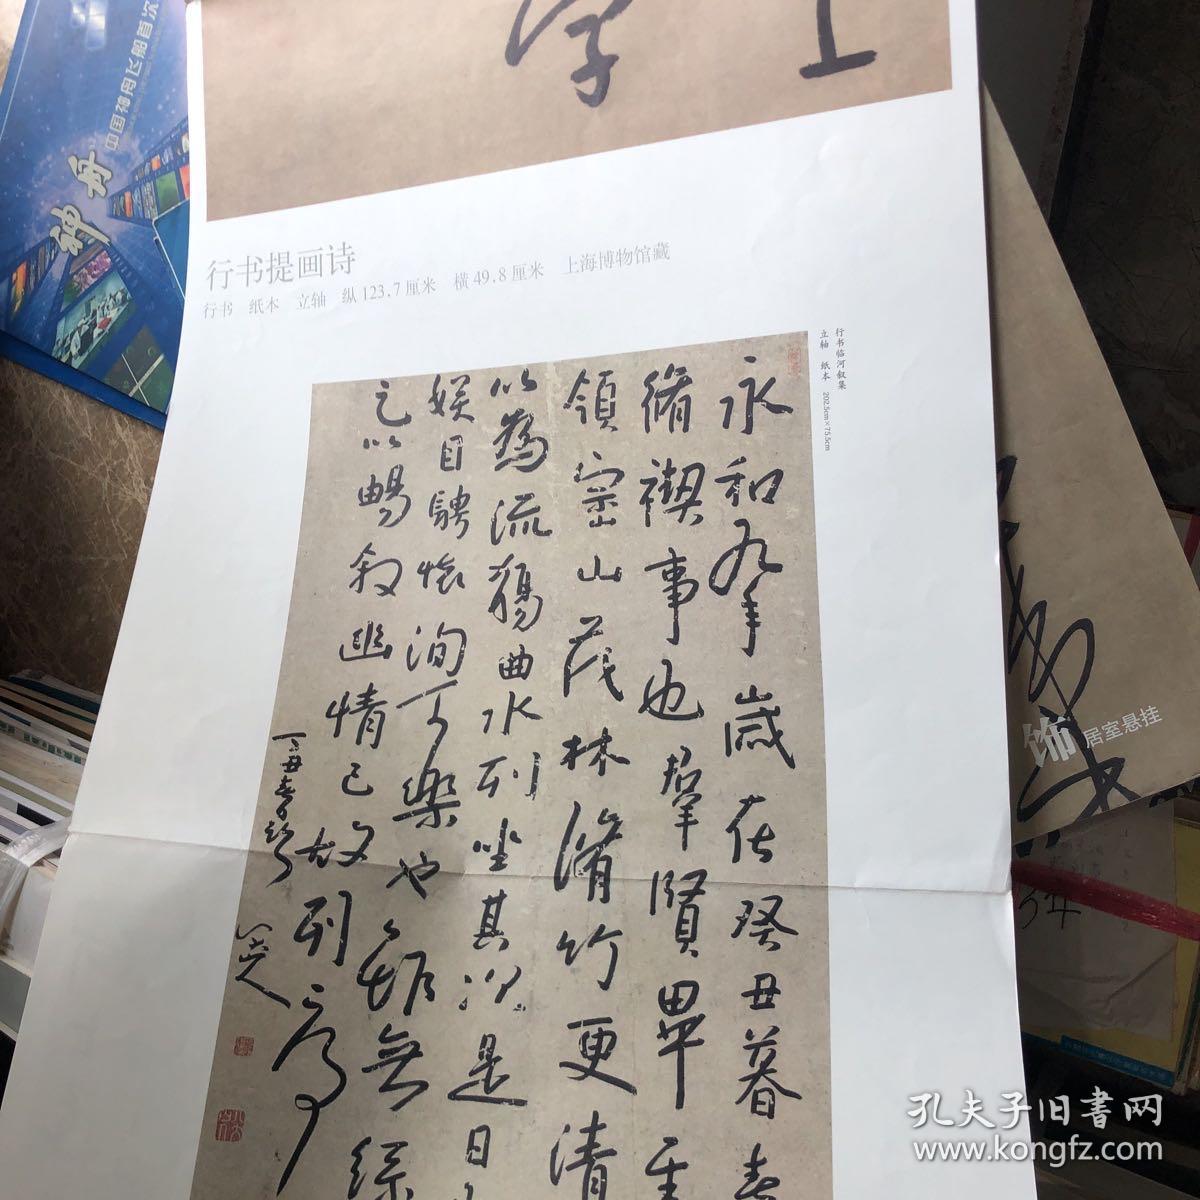 神舟
中国神舟飞船首次
字
行书提画诗
行书 纸本 立轴 纵123.7厘米 横49.8厘米 上海博物馆藏
行书临河叙集
立轴 纸本 202.5cm×75.5cm
永和九年歲在癸丑暮春
脩禊事也羣賢畢至
領崇山茂林脩竹更清
以為流觴曲水列坐其次是日
娛目騁懷洵可樂也雖無絲
之以暢敘幽情已故列序
丁丑春
八大山人
饰
居室悬挂
孔夫子旧书网
www.kongfz.com